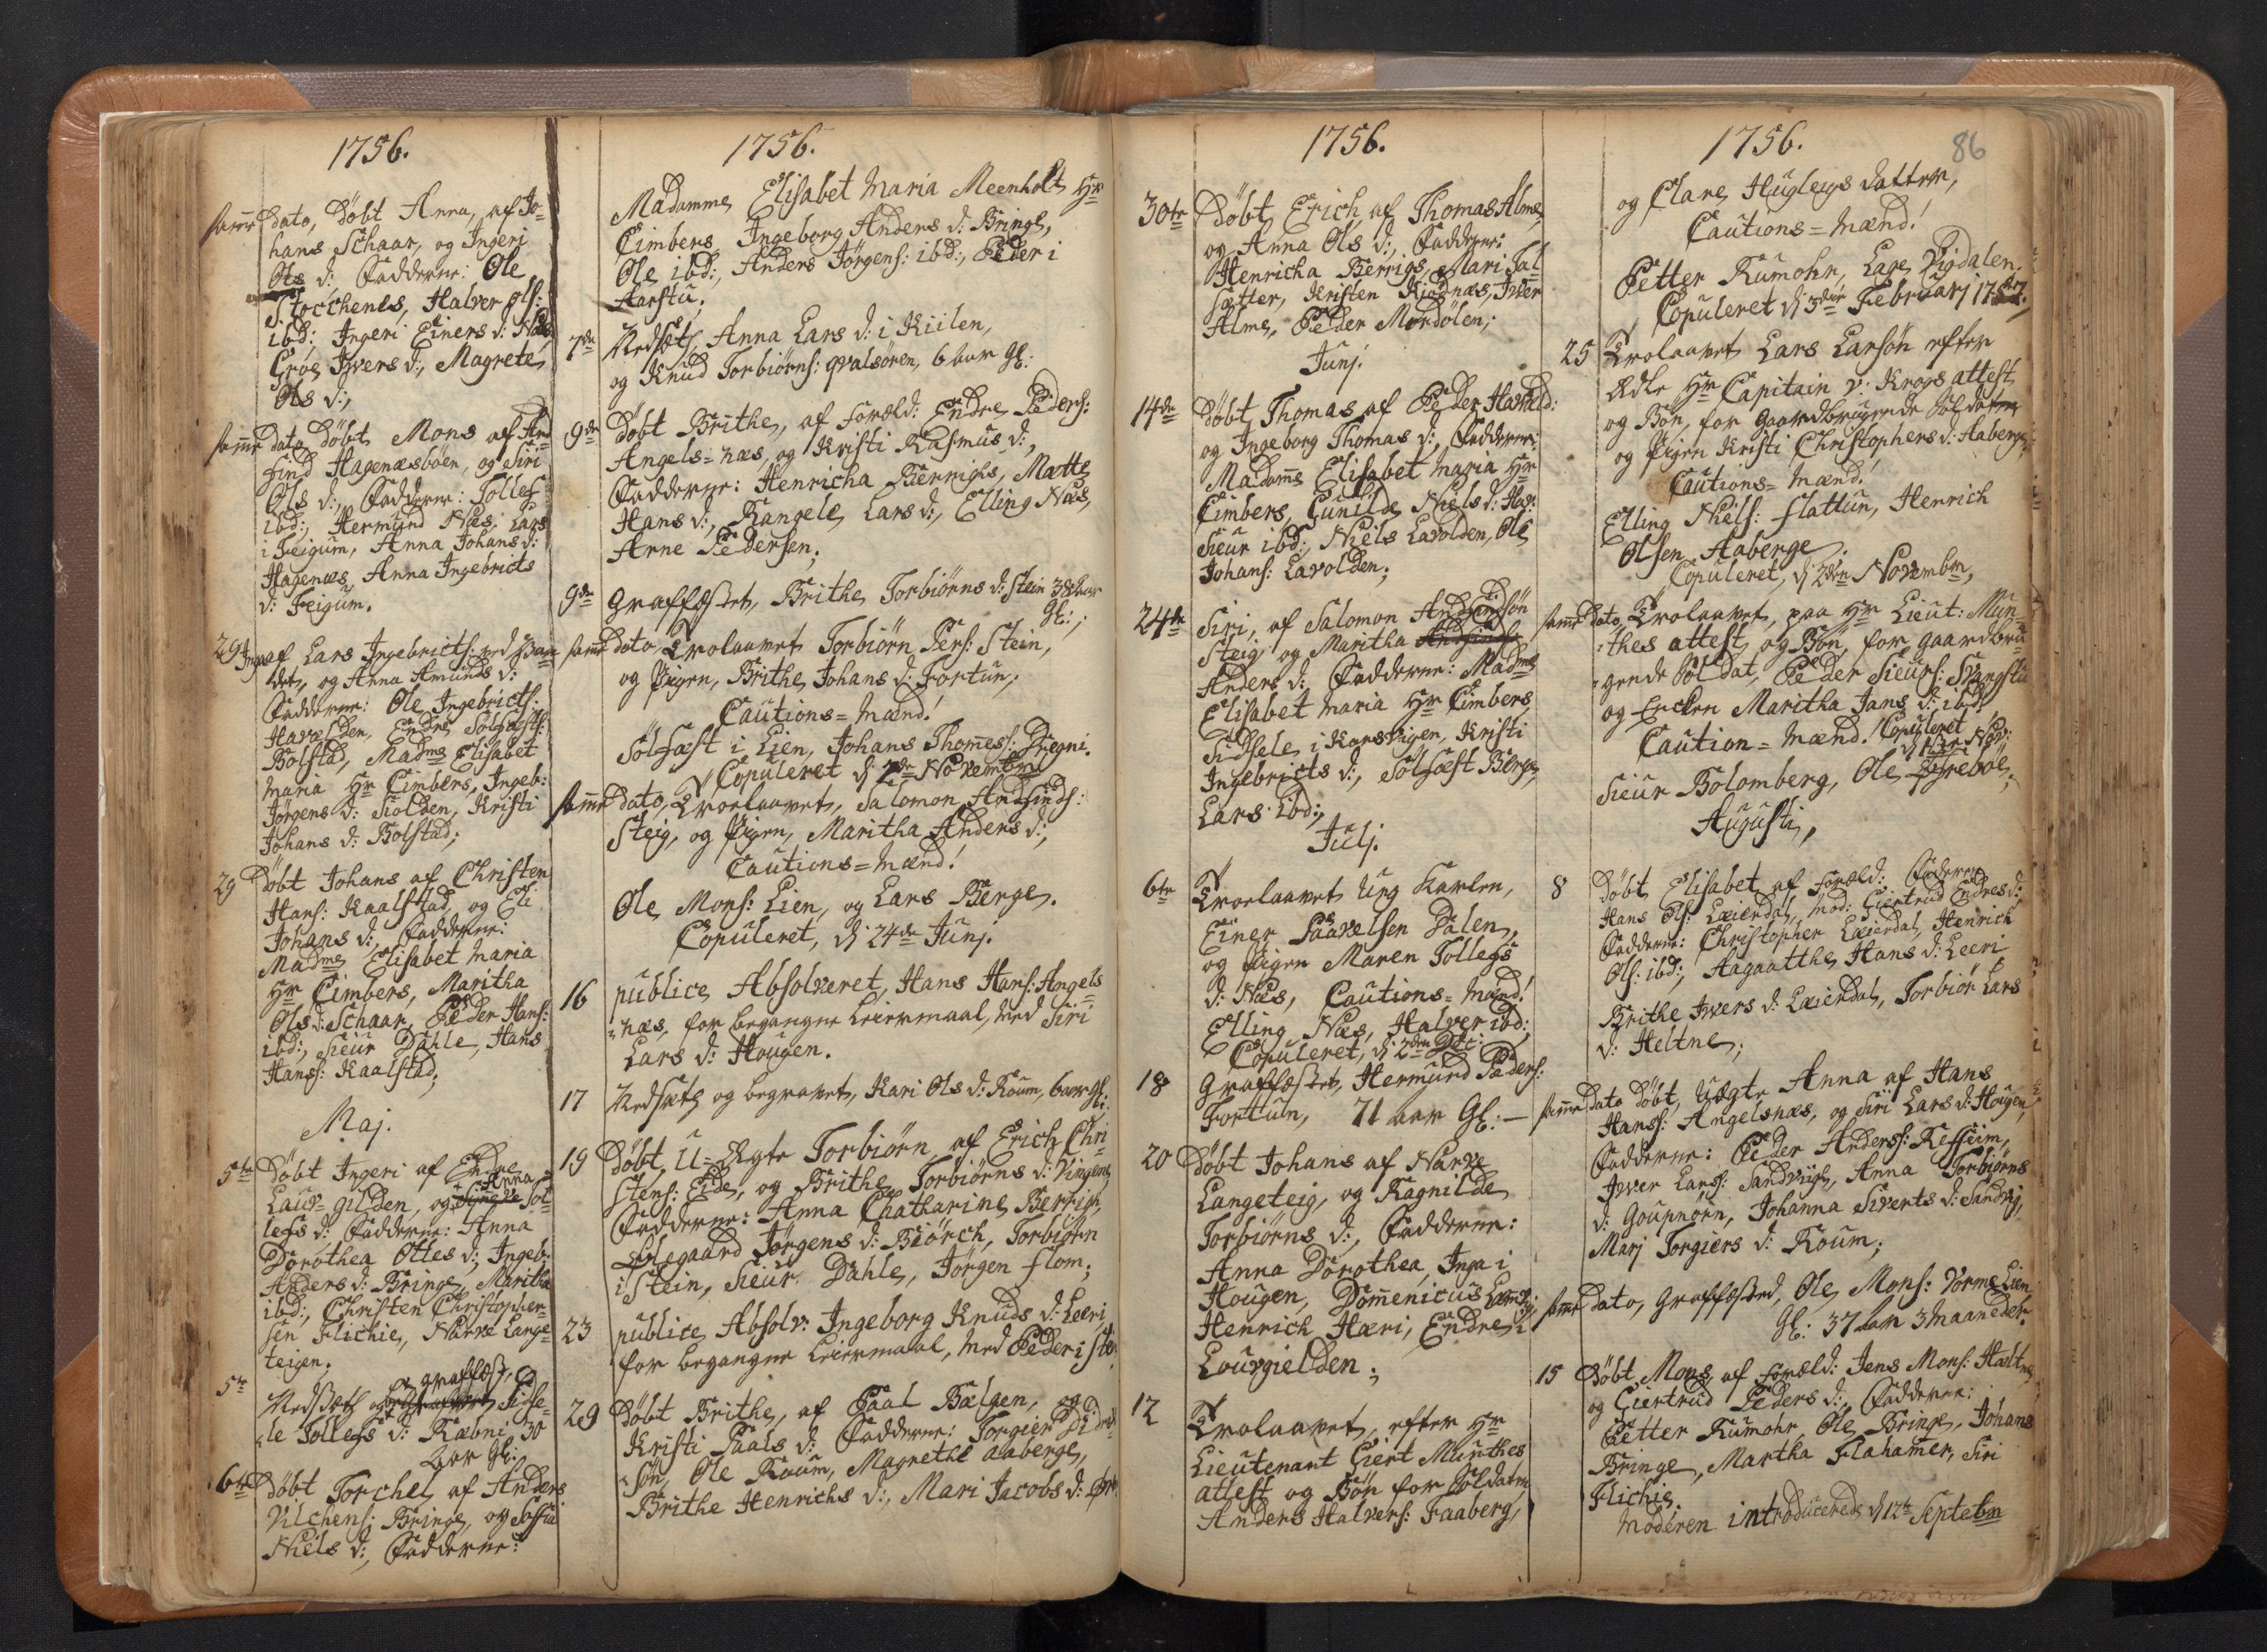 1756.
samme dato, Døbt Anna, af Jo=
hans Schaar, og Ingeri
Ols d: Fadderne: Ole
Stocchenes, Halver Ols:
ibd: Ingeri Einers d: Næs
Grøe Ivers d:, Magrete
Ols d:,
samme dato Døbt Mons af And
find Hagenæsbøen, og Siri
Ols d:, Fadderne: Tollef
ibd:, Hermund Næs, Lars
i Feigum, Anna Johans d:
Hagenæs, Anna Ingebricts
d: Feigum.
29 Inga af Lars Ingebricts: ved Van
det, og Anna Amunds d:
Fadderne: Ole Ingebricts:
Havelden, Endre Solfæsts:
Bolstad, Madme Elisabet
Maria Hr Cimbers, Ingeb:
Jørgens d: Siolden, Kristi
Johans d: Bolstad;
29 Døbt Johans af Christen
Hans: Kaalstad, og Eli
Johans d:, Fadderne:
Madme Elisabet Maria
Hr Cimbers, Maritha
Ols d: Schaar, Peder Hans:
ibd:, Sieur Dahle, Hans
Hanss: Kaalstad;
Maj.
5te Døbt Ingeri af Endre
Anna
Lauv=gilden, og Tol
lefs d: Fadderne: Anna
Dorothea Ottes d:, Ingeb:
Anders d: Bringe, Maritha
ibd:, Christen Christopher=
sen Flichie, Narve Lange=
teigen.
graffæst,
5te Nedsatt og Sidse=
le Tollefs d: Ræbni 30
Aar Gl:
6te Døbt Torchel af Anders
Vilchens: Bringe, og Soffia
Niels d:, Fadderne:
1756.
Madamme Elisabet Maria Meenholt Hr
Cimbers, Ingeborg Anders d: Bringe,
Ole ibd:, Anders Jørgens: ibd:, Peder i
Aarstu.
7de Nedsatt, Anna Lars d: i Kiilen,
og Knud Torbiørns: qvalsøren, 6 aar gl:
9de Døbt Brithe, af Foræld: Endre Peders:
Angels=næs, og Kristi Rasmus d:,
Fadderne: Henricha Berrigs, Matte
Hans d:, Rangele Lars d:, Elling Næs,
Arne Pedersen;
9de Graffæstet, Brithe Torbiørns d: Stein 38 aar
gl:;
samme dato, Trolaavet Torbiørn Pers: Stein,
og Pigen, Brithe Johans d: Fortun;
Cautions=Mænd!
Solfæst i Lien, Johans Thomess: Dregni.
Copuleret d 2de Novembr
samme dato, Troelaavet, Salomon Andfinds:
Steig, og Pigen, Maritha Anders d:,
Cautions=Mænd!
Ole Mons: Lien, og Lars Berge.
Copuleret, d 24de Junj.
16 publice Absolveret, Hans Hans: Angels
=næs, for begangne Leiermaal, med Siri
Lars d: Hougen.
17 Nedsatt og begravet, Kari Ols d: Roum, 6 aar gl:
19 Døbt, U=Ægte Torbiørn, af Erich Chri
stens: Eide, og Brithe Torbiørns d: Vingene
Fadderne: Anna Chatharine Berrigs,
Ablegaard Jørgens d: Biørch, Torbiørn
i Stein, Sieur Dahle, Jørgen flom;
23 publice Absolv: Ingeborg Knuds d: Leeri
for begangne Leiermaal, med Peder i
29 Døbt Brithe, af Paal Bælgen, og
Kristi Paals d: Fadderne: Torgier
=søn, Ole Roum, Magrethe Aaberge,
Brithe Henrichs d:, Mari Jacobs d:
1756.
30te Døbt Erich af Thomas Alme,
og Anna Ols d:, Fadderne:
Henricha Berrigs, Mari Sal
sætter, Kristen Kiødnæs, Iver
Alme, Peder Mordølen;
Junj.
14de Døbt Thomas af Peder Havald:
og Ingeborg Thomas d:, Fadderne:
Madame Elisabet Maria Hr
Cimbers, Gunilde Niels d: Hav:
Sieur ibd:, Niels Lavolden, Ole
Johans: Lavolden;
24de Siri, af Salomon Andfindsøn
Steig og Maritha
Anders d: Fadderne: Madme
Elisabet Maria Hr Cimbers,
Sidsele i Karsvigen, Kristi
Ingebricts d:, Solfæst Berge,
Lars ibd:,
Julj.
6te Troelaavet Ung Karlen,
Einer Paavelsen Dalen,
og Pigen Maren Tollefs
d: Næs, Cautions=Mænd!
Elling Næs, Halver ibd:
Copuleret, d 2den
18 Graffæstet, Hermund Peders:
Fortun, 71 aar Gl: —
20 Døbt Johans af Narve
Langeteig, og Ragnilde
Torbiørns d:, Fadderne:
Anna Dorothea, Inga i
Hougen, Domenicus
Henrich Hæri, Endre i
Lourgielden;
12 Trolaavet, efter Hr
Lieutenant Giert Munthes
attest og Bøn for Soldaten
Anders Halvers: Faaberg,
1756.
86
og Clare Hugleigs datter,
Cautions=Mænd!
Petter Rumohr, Lars Digdalen.
Copuleret d 3die Februarj 1757.
25 Trolaavet Lars Larsøn efter
Ædle Hr Capitain v: Krogs attest
og Bøn, for Gaardbrugende Soldaten
og Pigen Kristi Christophers d: Aaberge,
Cautions=Mænd!
Elling Niels: flattun, Henrich
Olsen Aaberge.
Copuleret, d 2den Novembr,
samme dato, Trolaavet, paa Hr Lieut: Mun
=thes attest, og Bøn, for Gaardbru
=gende Soldat, Peder Sieurs: Svangstu
og Encken Maritha Jans d: ibd:
Caution=Mænd! Copuleret
Nov:
Sieur Bolomberg, Ole
Augusti,
8 Døbt Elisabet af Foræld: Faderen
Hans Ols: Leierdal, Mod: Giertrud Endres d:
Fadderne: Christopher Leierdal, Henrich
Ols: ibd:, Aagaatthe Hans d: Leeri
Brithe Ivers d: Leierdal, Torbiør Lars
d: Heltne;
samme dato Døbt, Uægte Anna af Hans
Hanss: Angelsnæs, og Siri Lars d: Hougen,
Fadderne: Peder Anderss: Reffeim,
Iver Larss: Sandvig, Anna Torbiørns
d: Goupnørn, Johanna Siverts d: Sandvig,
Marj Torgiers d: Roum;
samme dato, Graffæsted, Ole Mons: Vorme Lien
gl: 37 aar 3 Maaneder.
15 Døbt Mons, af Foræld: Jens Mons: Hæltne
og Giertrud Peders d:, Fadderne:
Petter Rumohr, Ole Bringe, Johans
Bringe, Martha Flahamer, Siri
Flichie.
Moderen introduceret d 12te Septebr